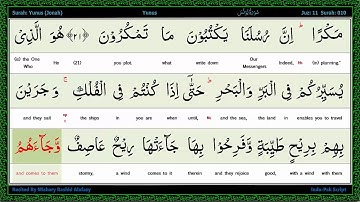 Surah: Yunus (Jonah) Yunus سُوْرَةُ يُوْنُس Juz: 11 Surah: 010
مَكْرًا ؕ اِنَّ رُسُلَنَا يَكْتُبُوْنَ مَا تَمْكُرُوْنَ ﴿۲۱﴾ هُوَ الَّذِيْ
(is) the One Who He (21) you plot. what write down Our Messengers Indeed, (in) planning."
يُسَيِّرُكُمْ فِي الْبَرِّ وَالْبَحْرِ ؕ حَتّٰۤى اِذَا كُنْتُمْ فِي الْفُلْكِ ۚ وَجَرَيْنَ
and they sail the ships in you are when until, and the sea, the land in enables you to travel
بِهِمْ بِرِيْحٍ طَيِّبَةٍ وَّفَرِحُوْا بِهَا جَآءَتْهَا رِيْحٌ عَاصِفٌ وَّجَآءَهُمُ
and comes to them stormy, a wind comes to it therein and they rejoice good, with a wind with them
Recited By Mishary Rashid Alafasy Indo-Pak Script